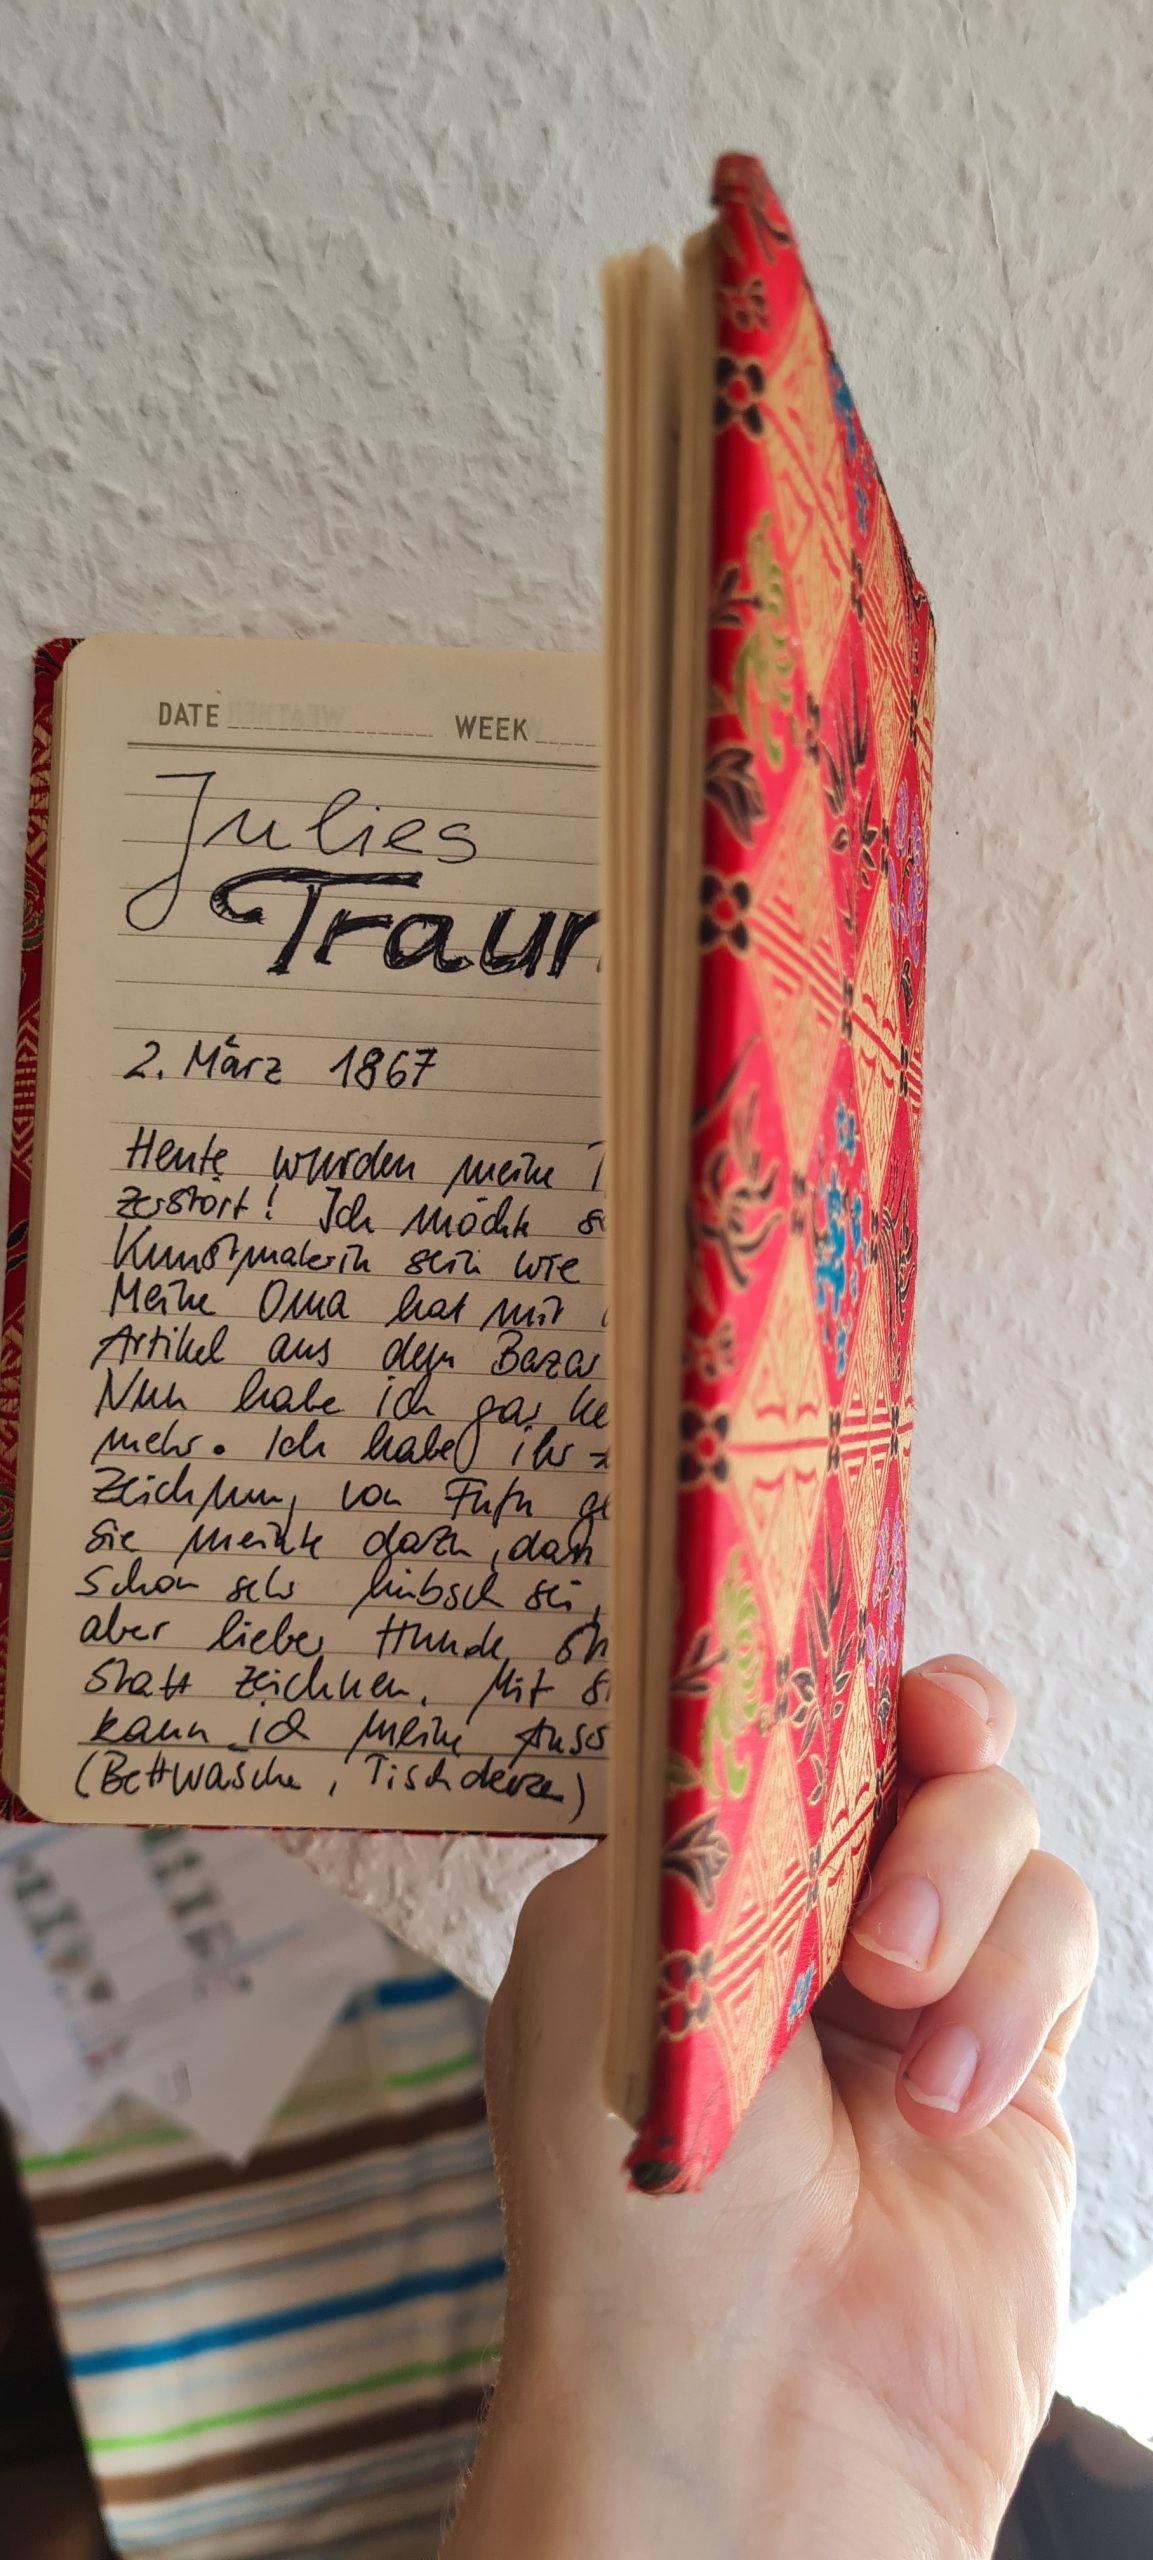 DATE WEEK
Julies
Traum
2. März 1867
Heute wurden meine
zerstört! Ich möchte
Kunstmalerin sein wie
Meine Oma hat mir
Artikel aus dem Bazar
Nun habe ich gar
mehr. Ich habe ihr
Zeichnung von Fufu
Sie meinte dazu, dass
schon sehr hübsch sei,
aber lieber Hunde
statt zeichnen. Mit
kann ich meine
(Bettwäsche, Tischdecken)